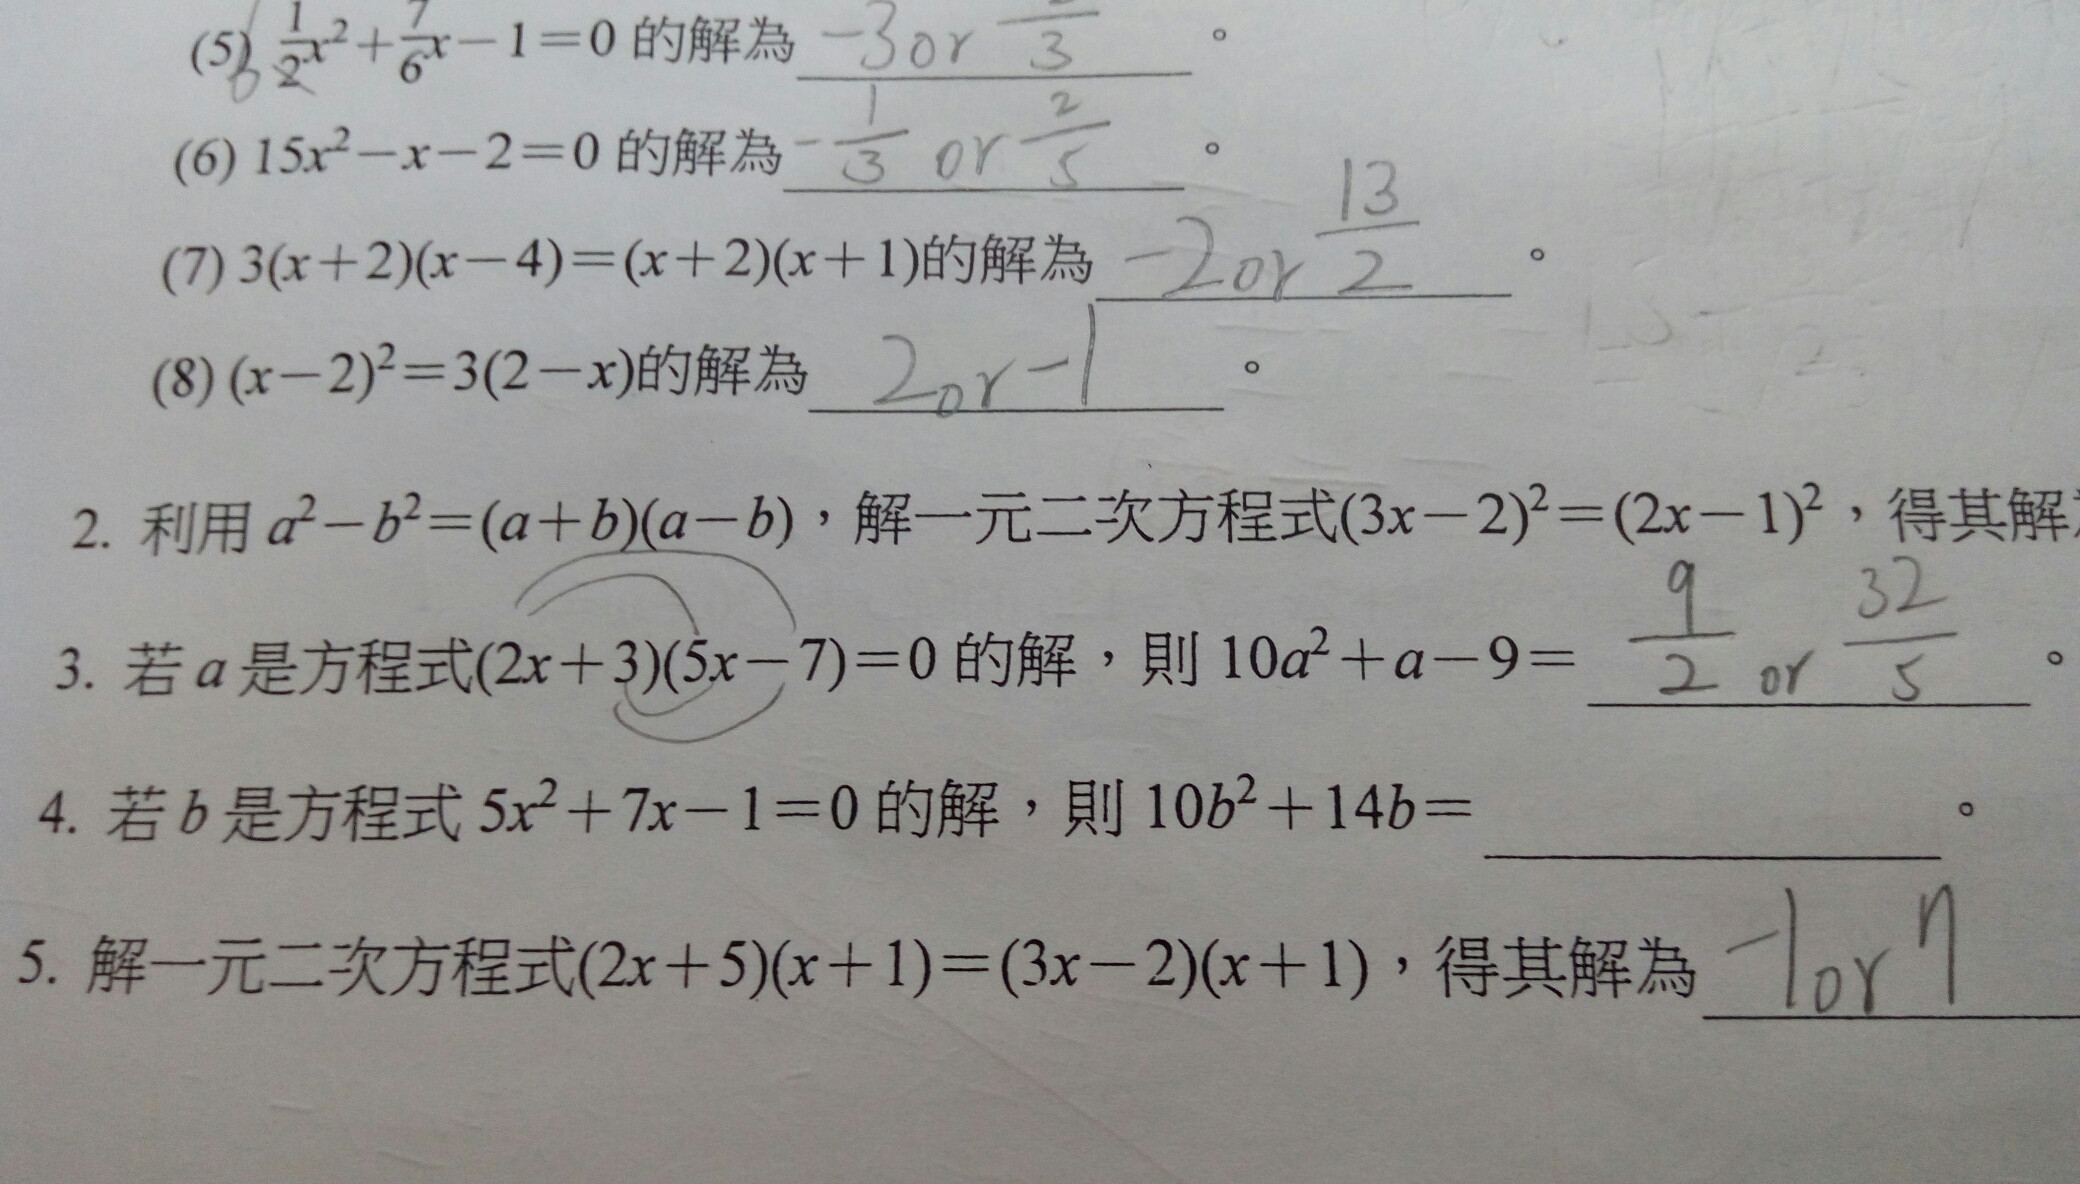 (5) 1/2x²+7/6x−1=0 的解為 -3 or /3 。
(6) 15x²−x−2=0 的解為 -1/3 or 2/5 。
(7) 3(x+2)(x−4)=(x+2)(x+1)的解為 -2 or 13/2 。
(8) (x−2)²=3(2−x)的解為 2 or -1 。
2. 利用 a²−b²=(a+b)(a−b),解一元二次方程式(3x−2)²=(2x−1)²,得其解
3. 若 a 是方程式(2x+3)(5x−7)=0 的解,則 10a²+a−9= 9/2 or 32/5 。
4. 若 b 是方程式 5x²+7x−1=0 的解,則 10b²+14b= 。
5. 解一元二次方程式(2x+5)(x+1)=(3x−2)(x+1),得其解為 -1 or 7